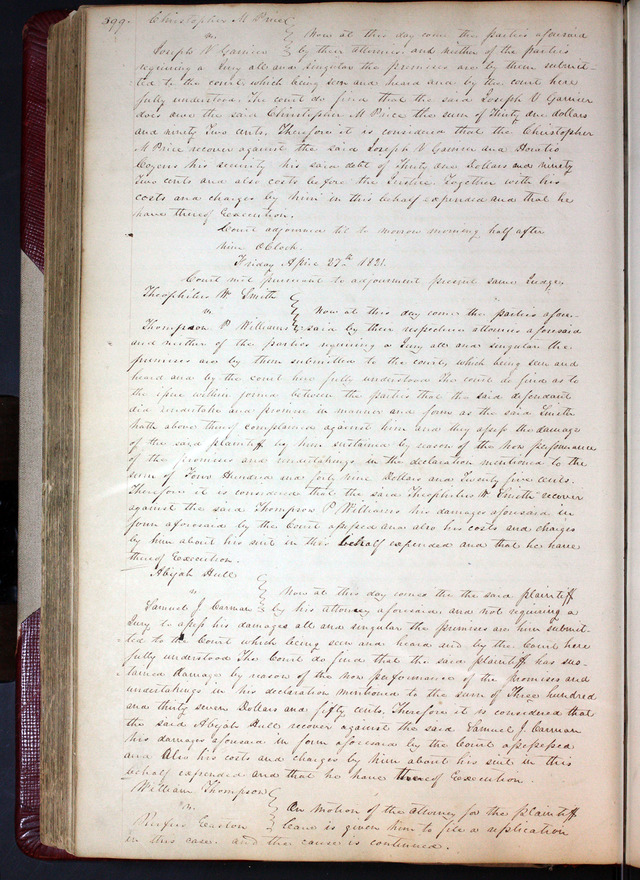 399. Christopher M Price
vs. Now at this day come the parties aforesaid
Joseph V Garnier by their attornies and neither of the parties
requiring a Jury all and singular the premises are by them submit-
ted to the court which being seen and heard and by the court here
fully understood. The court do find that the said Joseph V Garnier
does owe the said Christopher M Price the sum of Thirty one dollars
and ninety Two cents. Therefore it is considered that the Christopher
M Price recover against the said Joseph V Garnier and Horatio
Cozens his security his said debt of Thirty one Dollars and ninety
Two cents and also costs before the Justice Together with his
costs and charges by him in this behalf expended and that he
have thereof Execution.
Court adjourned till to morrow morning half after
nine OClock.
Friday April 27th 1821.
Court met pursuant to adjournment present same Judge,
Theophilus W. Smith
vs Now at this day come the parties afore-
Thompson P. Williams said by their respective attornies aforesaid
and neither of the parties requiring a Jury all and singular the
premises are by them submitted to the court, which being seen and
heard and by the court here fully understood The court do find as to
the issue within joined between the parties that the said defendant
did undertake and promise in manner and form as the said Smith
hath above thereof complained against him and they assess the damage
of the said plaintiff by him sustained by reason of the Non performance
of the promises and undertakings in the declaration mentioned to the
sum of Four Hundred and forty nine Dollars and Twenty five cents.
Therefore it is considered that the said Theophilus W. Smith recover
against the said Thompson P Williams his damages aforesaid in
form aforesaid by the Court assessed and also his costs and charges
by him about his suit in this behalf expended and that he have
thereof Execution.
Abijah Hull
vs Now at this day comes the the said plaintiff
Samuel J. Carman by his attorney aforesaid and not requiring a
Jury to assess his damages all and singular the premises are him submit-
ted to the Court which being seen and heard and by the Court here
fully understood The Court do find that the said plaintiff has sus-
tained damage by reason of the non performance of the promises and
undertakings in his declaration mentioned to the sum of Three hundred
and thirty seven Dollars and fifty cents. Therefore it is considered that
the said Abijah Hull recover against the said Samuel J. Carman
his damages aforesaid in form aforesaid by the Court assessed
and Also his costs and charges by him about his suit in this
behalf expended and that he have thereof Execution.
William Thompson
vs. On motion of the attorney for the plaintiff
Rufus Easton Leave is given him to file a replication
in this case. and the cause is continued.